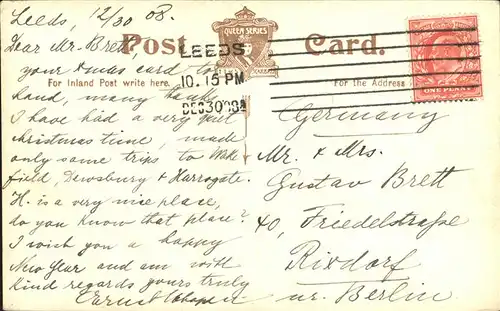 Leeds, 12/30 08.
Dear Mr. Brett,
your Xmas card to
hand, many thanks
I have had a very quiet
christmas time, made
only some trips to Wake
field, Dewsbury & Harrogate.
H. is a very nice place,
do you know that place?
I wish you a happy
New Year and am with
kind regards yours truly
Ernst
Post Card.
QUEEN SERIES
For Inland Post write here.
For the Address
LEEDS
10.15 PM
DEC 30 08
ONE PENNY
Germany
Mr. & Mrs.
Gustav Brett
40, Friedelstraße
Rixdorf
nr. Berlin